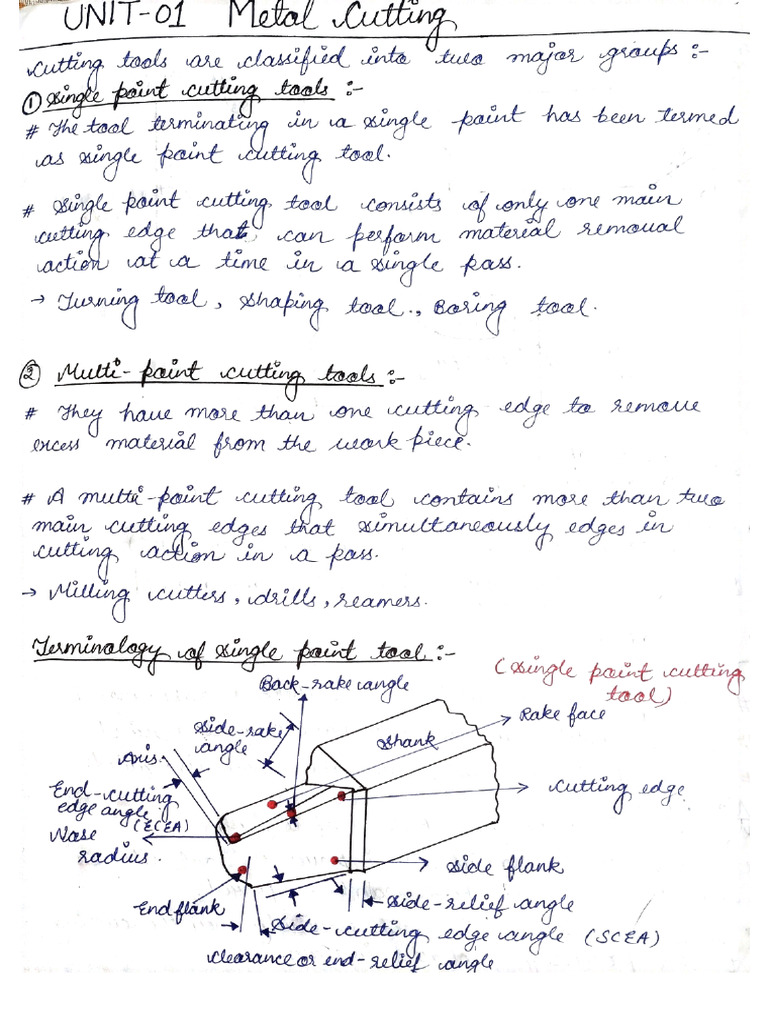 UNIT-01 Metal Cutting
Cutting tools are classified into two major groups :-
① Single point cutting tools :-
# The tool terminating in a single point has been termed
as single point cutting tool.
# Single point cutting tool consists of only one main
cutting edge that can perform material removal
action at a time in a single pass.
→ Turning tool, Shaping tool., Boring tool.
② Multi-point cutting tools :-
# They have more than one cutting edge to remove
excess material from the work piece.
# A multi-point cutting tool contains more than two
main cutting edges that simultaneously edges in
cutting action in a pass.
→ Milling cutters, drills, reamers.
Terminology of single point tool :-
(Single point cutting
tool)
Back-rake angle
Rake face
Side-rake
angle
Shank
Axis
End-cutting
edge angle
(ECEA)
Cutting edge
Nose
radius.
Side flank
End flank
Side-relief angle
Side-cutting edge angle (SCEA)
Clearance or end-relief angle